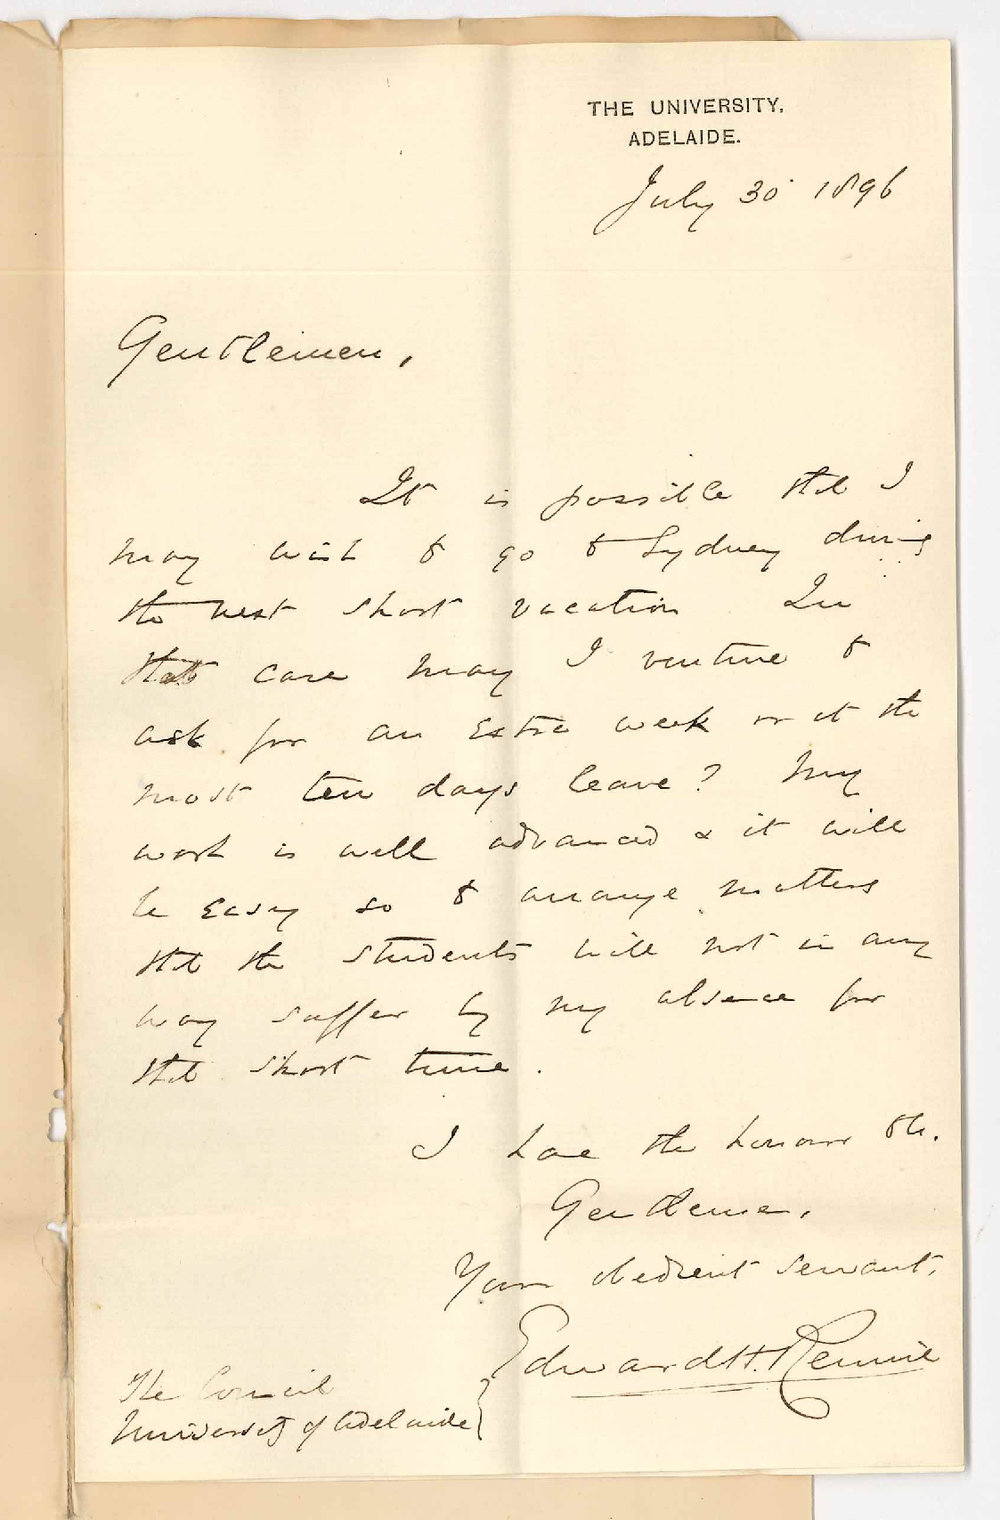 THE UNIVERSITY,
ADELAIDE.
July 30 1896
Gentlemen,
It is possible that I
may wish to go to Sydney during
the next short vacation In
that case may I venture to
ask for an extra week or at the
most ten days leave? My
work is well advanced & it will
be easy so to arrange matters
that the students will not in any
way suffer by my absence for
that short time.
I have the honour to be.
Gentlemen,
Your obedient servant,
Edward H. Rennie
The Council
University of Adelaide }